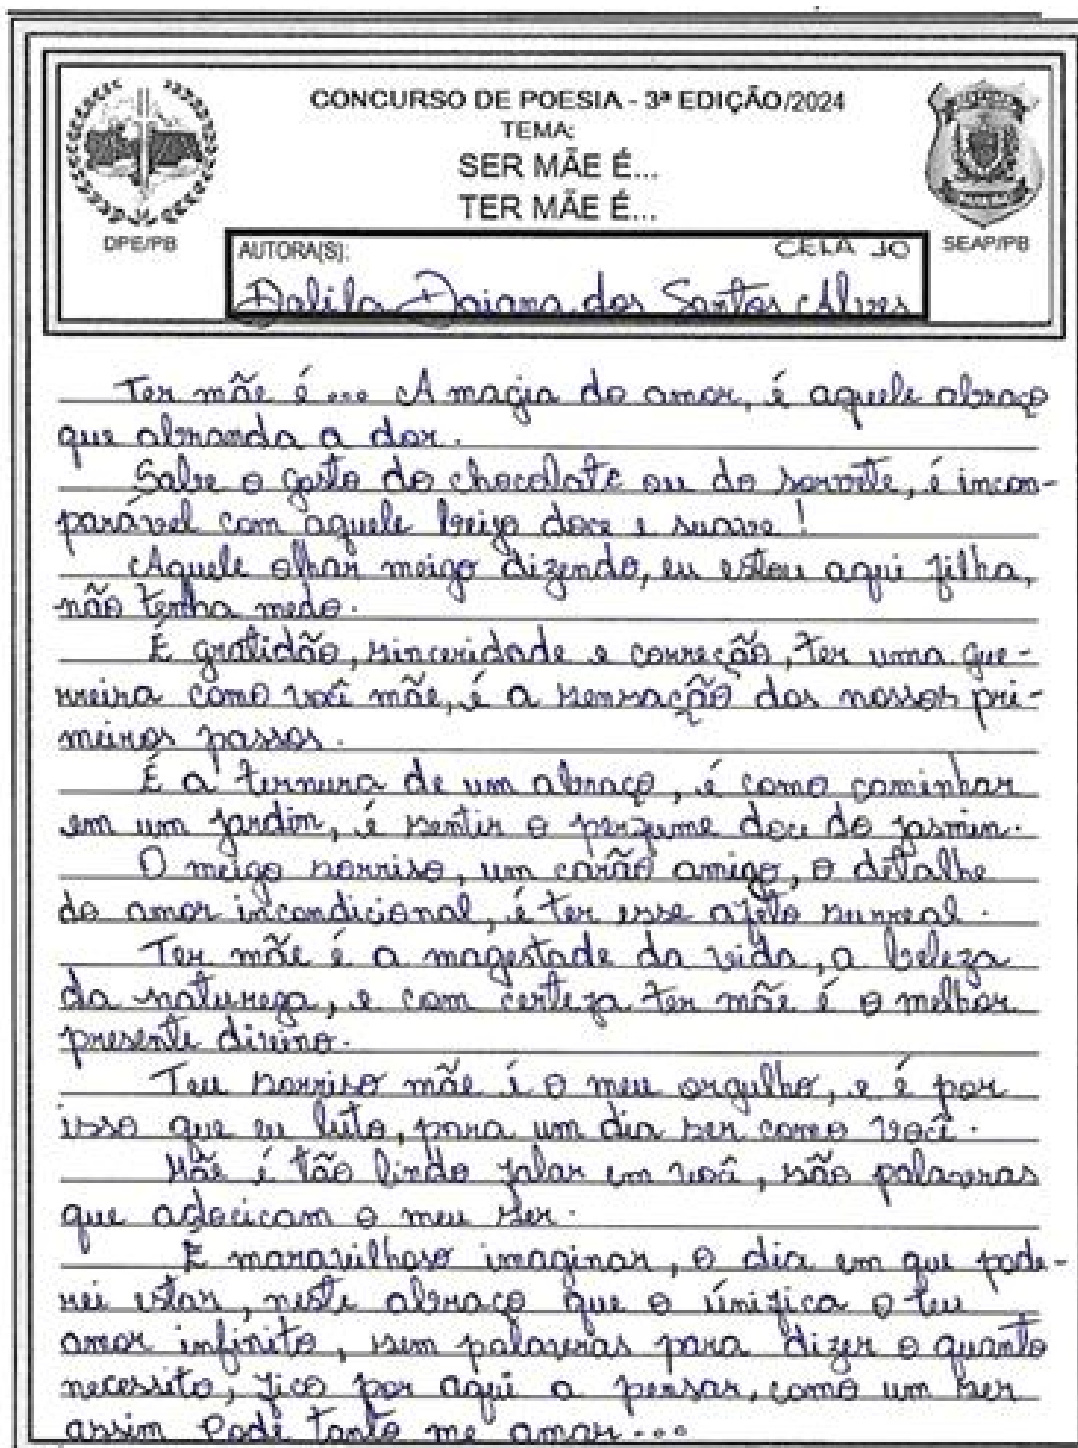 CONCURSO DE POESIA - 3ª EDIÇÃO/2024
TEMA:
SER MÃE É...
TER MÃE É...
DPE/PB
AUTORA(S):
CELA 10
SEAP/PB
Dalila Daiana dos Santos Alves
Ter mãe é ... A magia do amor, é aquele abraço
que abranda a dor.
Sabe o gosto do chocolate ou do sorvete, é incon-
parável com aquele beijo doce e suave!
Aquele olhar meigo dizendo, eu estou aqui filha,
não tenha medo.
É gratidão, sinceridade e correção, ter uma gue-
rreira como você mãe, é a sensação dos nossos pri-
meiros passos.
É a ternura de um abraço, é como caminhar
em um jardin, é sentir o perfume doce do jasmin.
O meigo sorriso, um carão amigo, o detalhe
do amor incondicional, é ter esse afeto surreal.
Ter mãe é a magestade da vida, a beleza
da natureza, e com certeza ter mãe é o melhor
presente divino.
Teu sorriso mãe é o meu orgulho, e é por
isso que eu luto, para um dia ser como você.
Mãe é tão lindo falar em você, são palavras
que adocicam o meu ser.
É maravilhoso imaginar, o dia em que pode-
rei estar, neste abraço que o únifica o teu
amor infinito, sem palavras para dizer o quanto
necessito, fico por aqui a pensar, como um ser
assim Pode tanto me amar...